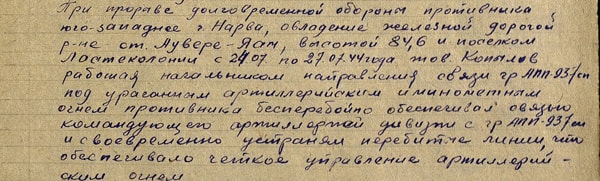 При прорыве долговременной обороны противника
юго-западнее г. Нарва, овладение железной дорогой
р-не ст. Аувере-Яам, высотой 84,6 и поселком
Ластеколони с 24.07 по 27.07.44 года тов. Копылов
работая начальником направления связи гр АПП-937сп
под ураганным артиллерийским и минометным
огнем противника бесперебойно обеспечивал связью
командующего артиллерией дивизии с гр АПП-937сп
и своевременно устранял перебитые линии, что
обеспечивало четкое управление артиллерий-
ским огнем